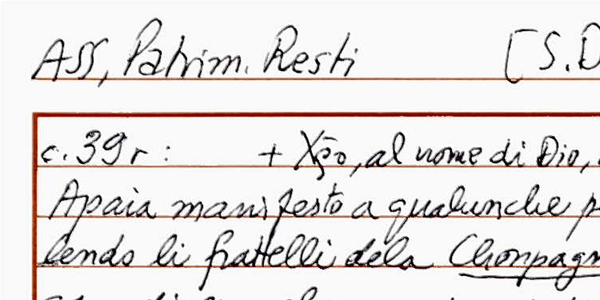 ASS, Patrim. Resti [S.D
c. 39r: + Xpo, al nome di Dio,
Apaia manifesto a qualunche p
lendo li fratelli dela Chonpagn